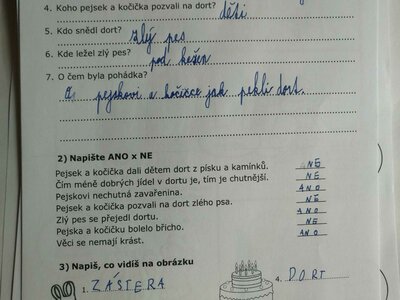 4. Koho pejsek a kočička pozvali na dort? děti
5. Kdo snědl dort? zlý pes
6. Kde ležel zlý pes? pod kežen
7. O čem byla pohádka?
O pejskovi a kočičce jak pekli dort.
2) Napište ANO x NE
Pejsek a kočička dali dětem dort z písku a kamínků. NE
Čím méně dobrých jídel v dortu je, tím je chutnější. NE
Pejskovi nechutná zavařenina. ANO
Pejsek a kočička pozvali na dort zlého psa. NE
Zlý pes se přejedl dortu. ANO
Pejska a kočičku bolelo břicho. NE
Věci se nemají krást. ANO
3) Napiš, co vidíš na obrázku
1. ZÁSTERA
4. DORT